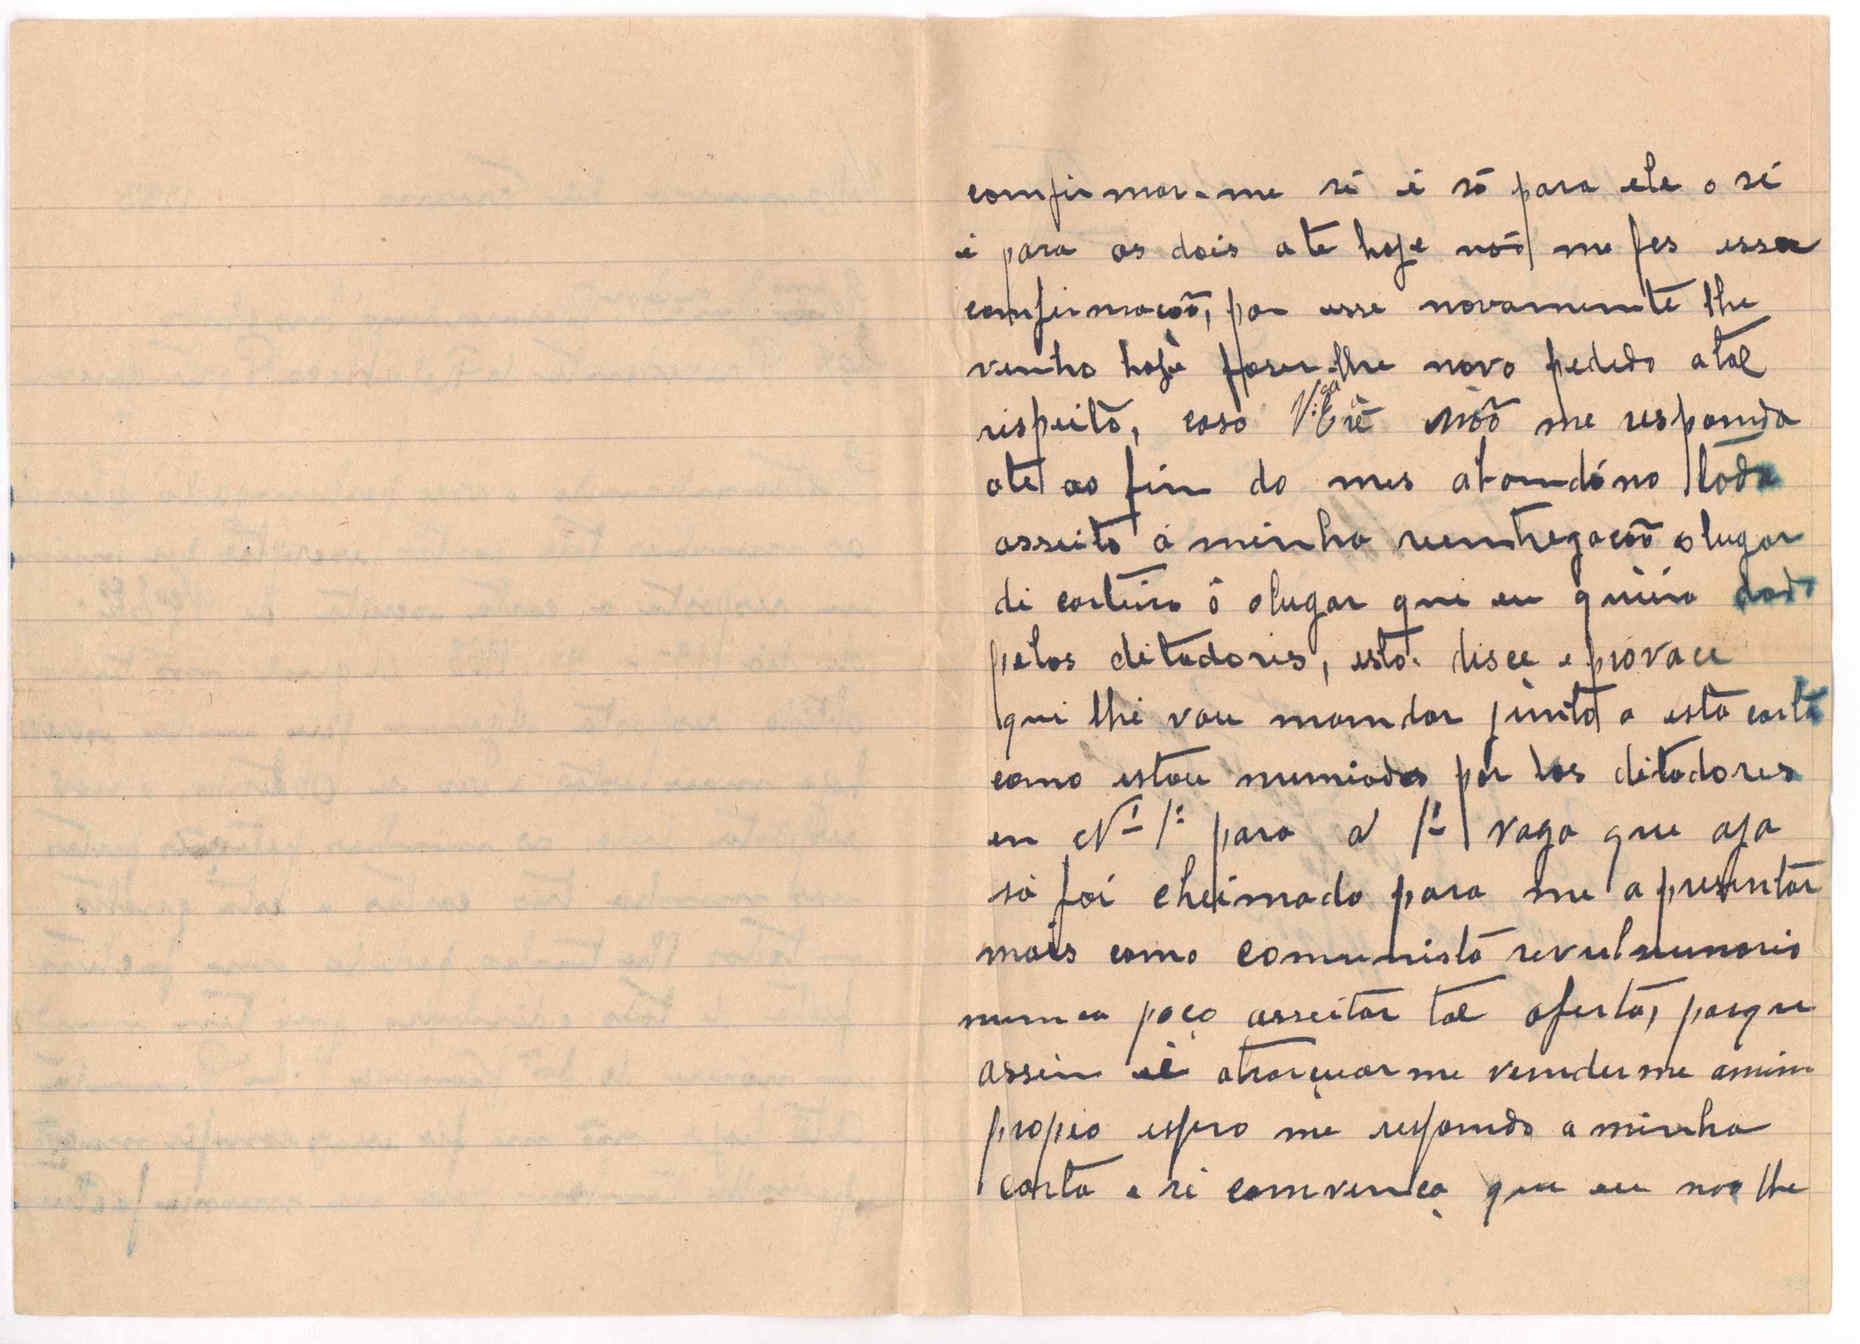 confirmar-me si é só para ele o si
é para os dois ate hoje não me fes essa
confirmação, por esse novamente lhe
venho hoje faser-lhe novo pedido atal
rispeito, caso V. Ex.ª não me responda
ate ao fim do mes abandóno toda
asseito a minha reentregação o lugar
di carteiro ó olugar que eu quiéro dado
pelos ditadores, esto. disee e provace
qui lhi vou mandar junto a esta carta
como estou numiado por los ditadores
en Nº 1º para a 1ª vaga que aja
só foi cheimado para me apresentar
mais como comunista
nunca poço asseitar tal oferta, porque
assin é atraiçuarme venderme amim
propio espero me responda a minha
carta e si convença que eu nao lhe